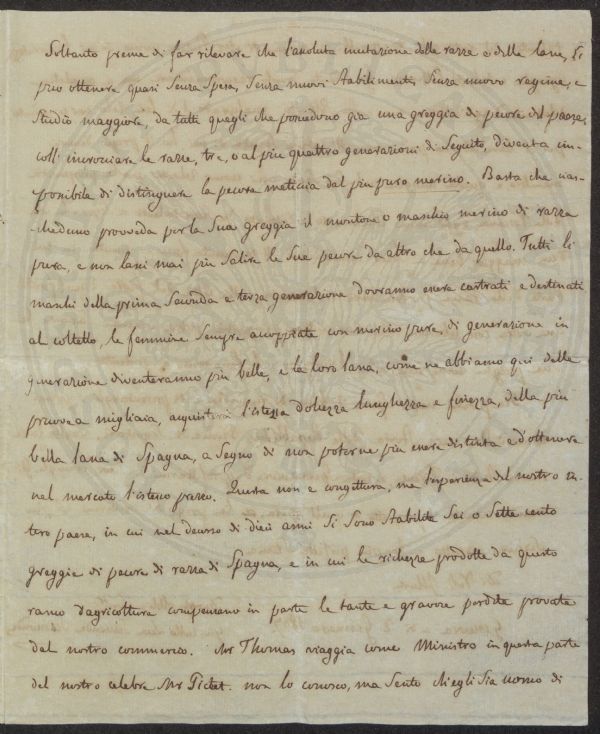 Soltanto preme di far rilevare che l'assoluta mutazione delle razze e delle lane, si
puo ottenere quasi senza spesa, senza nuovi stabilimenti, senza nuovo regime, e
studio maggiore, da tutti quegli che possedono gia una greggia di pecore del paese,
coll' incrociare le razze, tre, o al piu quattro generazioni di seguito, diventa im-
possibile di distinguere la pecora meticcia dal piu puro merino. Basta che cias-
cheduno provveda per la sua greggia il montone o maschio merino di razza
pura, e non lasci mai piu salire le sue pecore da altro che da quello. Tutti li
maschi della prima seconda e terza generazione dovranno essere castrati e destinati
al coltello, le femmine sempre accoppiate con merino puro, di generazione in
generazione diventeranno piu belle, e la loro lana, come ne abbiamo qui delle
pruove a migliaia, acquisterà l'istessa dolcezza lunghezza e finezza, della piu
bella lana di Spagna, a segno di non poterne piu essere distinta e d'ottenere
nel mercato l'istesso prezzo. Questa non e congettura, ma l'esperienza del nostro in-
tero paese, in cui nel decorso di dieci anni si sono stabilite sei o sette cento
greggie di pecore di razza di Spagna, e in cui le richezze prodotte da questo
ramo d'agricoltura compensano in parte le tante e gravose perdite provate
dal nostro commercio. Mr Thomas viaggia come Ministro in questa parte
del nostro celebre Mr Pictet. non lo conosco, ma sento ch'egli sia uomo di